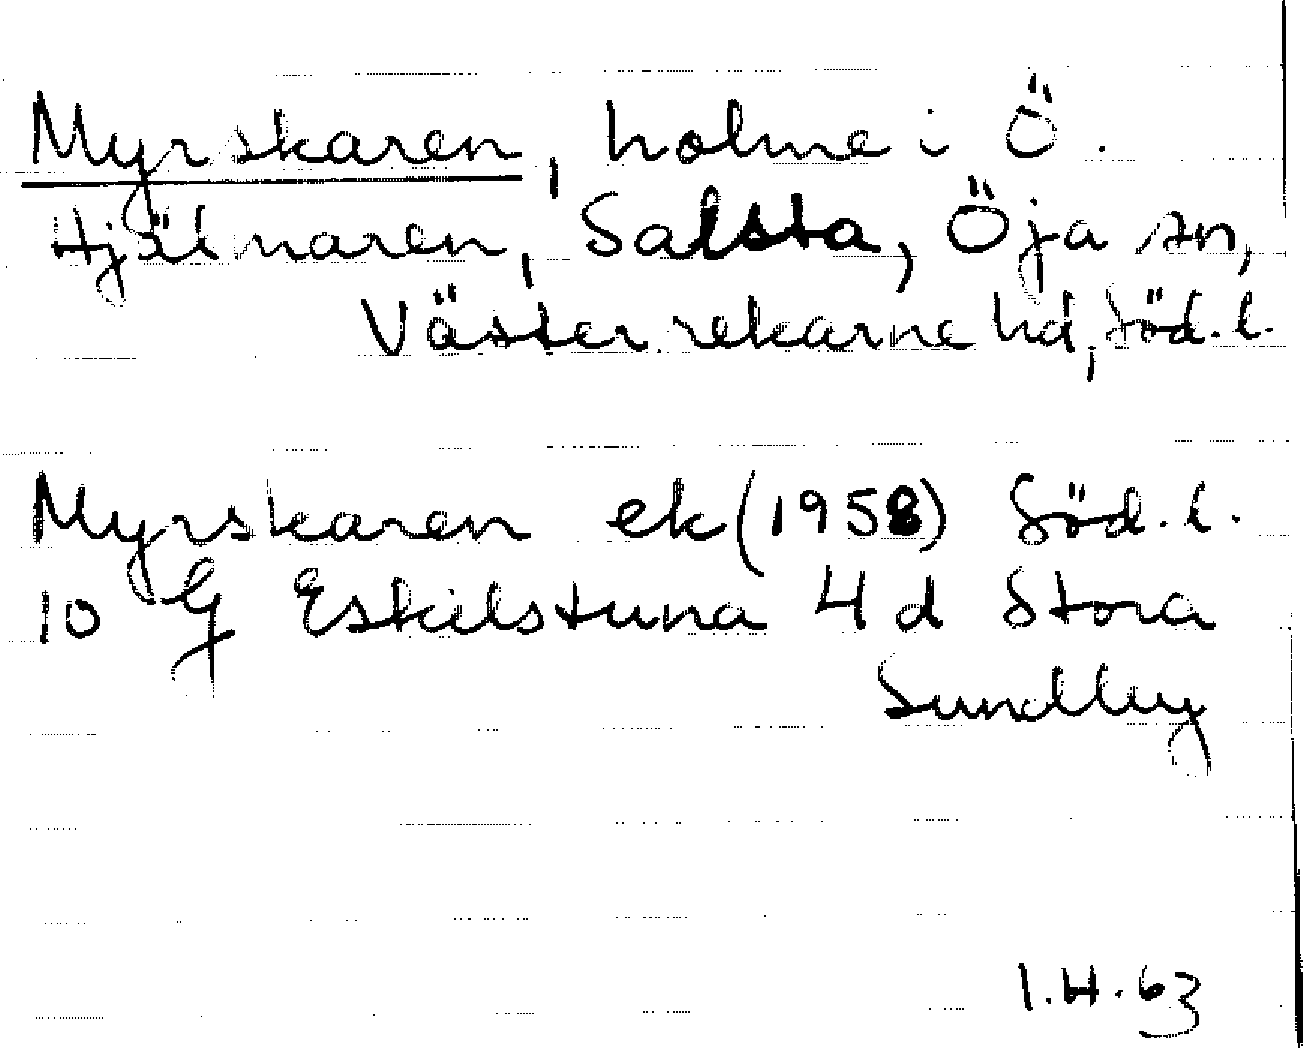 Myrskaren, holme i Ö.
Hjälmaren, Salsta, Öja sn,
Västerrekarne hd, Söd.l.
Myrskaren ek (1958) Söd.l.
10 G Eskilstuna 4 d Stora
Sundby
I.H.63